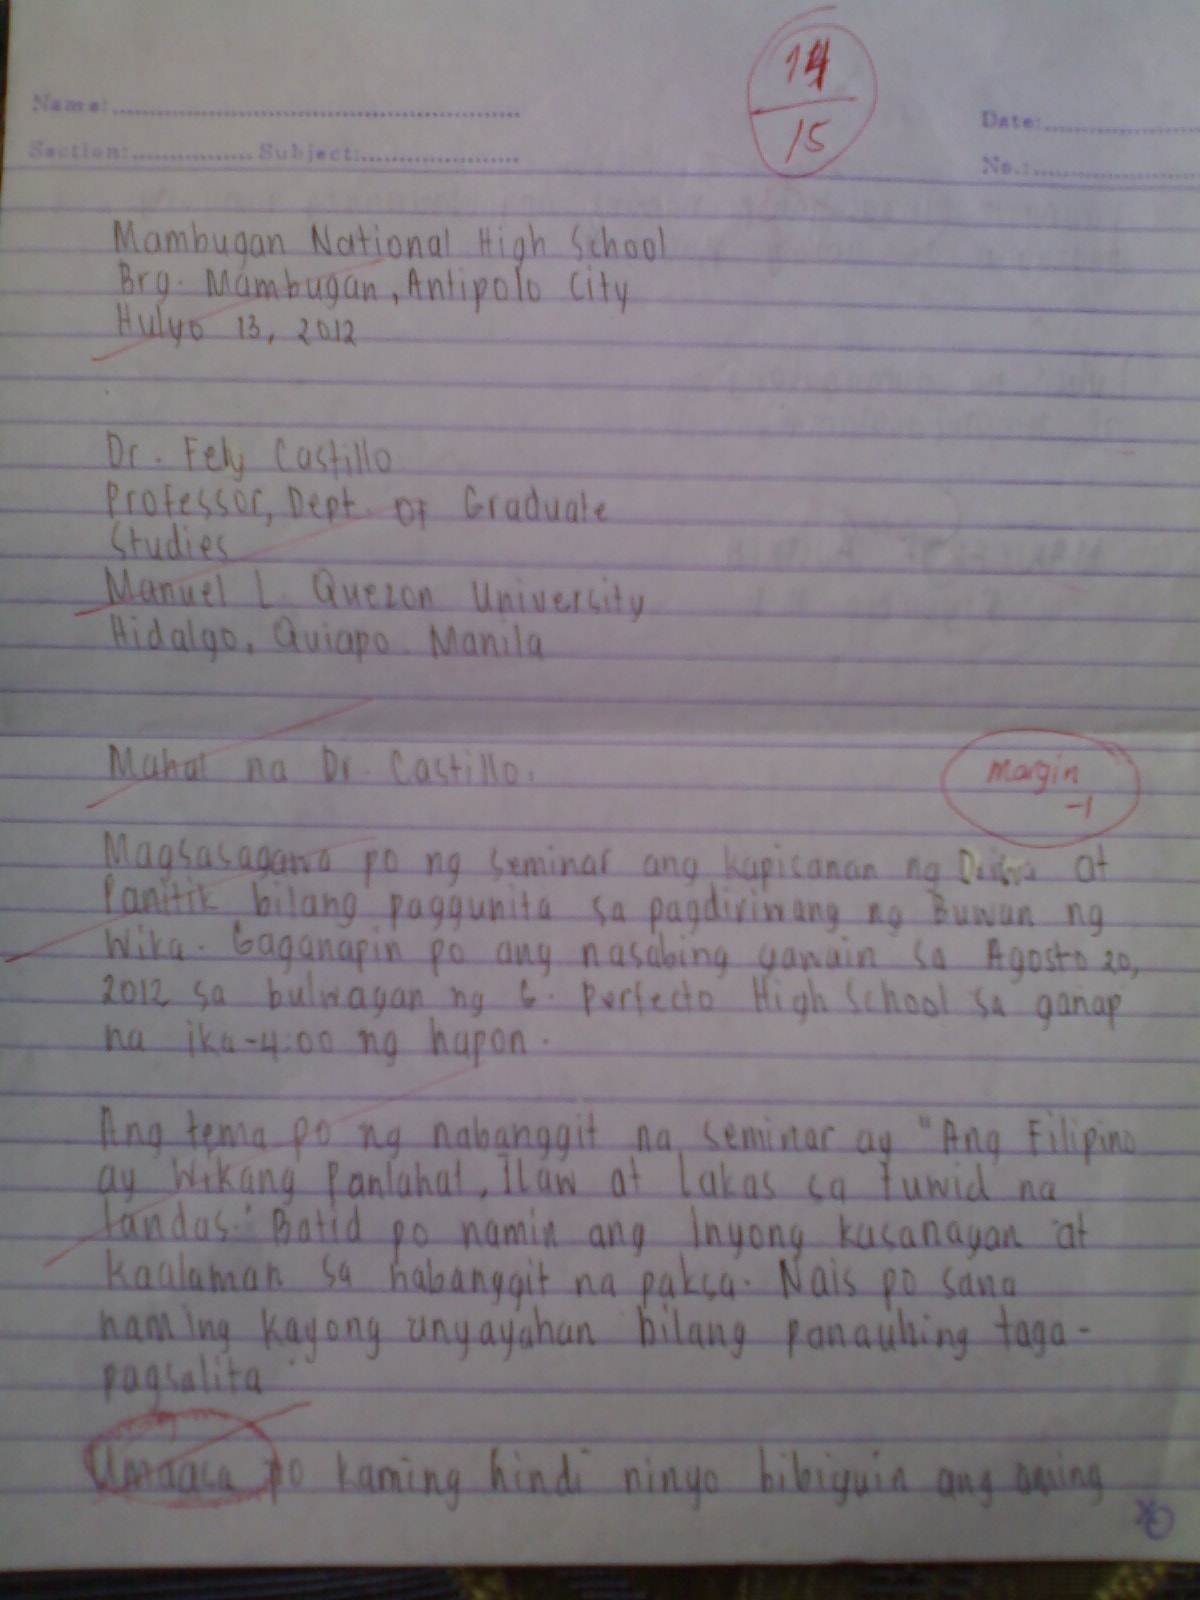 14
15
Name:
Date:
Section: Subject:
No.:
Mambugan National High School
Brg. Mambugan, Antipolo City
Hulyo 13, 2012
Dr. Fely Castillo
Professor, Dept. of Graduate
Studies
Manuel L. Quezon University
Hidalgo, Quiapo. Manila
Mahal na Dr. Castillo.
margin
-1
Magsasagawa po ng seminar ang kapisanan ng at
Panitik bilang paggunita sa pagdiriwang ng Buwan ng
Wika. Gaganapin po ang nasabing gawain sa Agosto 20,
2012 sa bulwagan ng G. Perfecto High School sa ganap
na ika-4:00 ng hapon.
Ang tema po ng nabanggit na seminar ay "Ang Filipino
ay Wikang Panlahat, Ilaw at Lakas sa tuwid na
landas." Batid po namin ang Inyong kasanayan at
kaalaman sa nabanggit na paksa. Nais po sana
naming kayong anyayahan bilang panauhing taga-
pagsalita
Umaasa po kaming hindi ninyo bibiguin ang aming